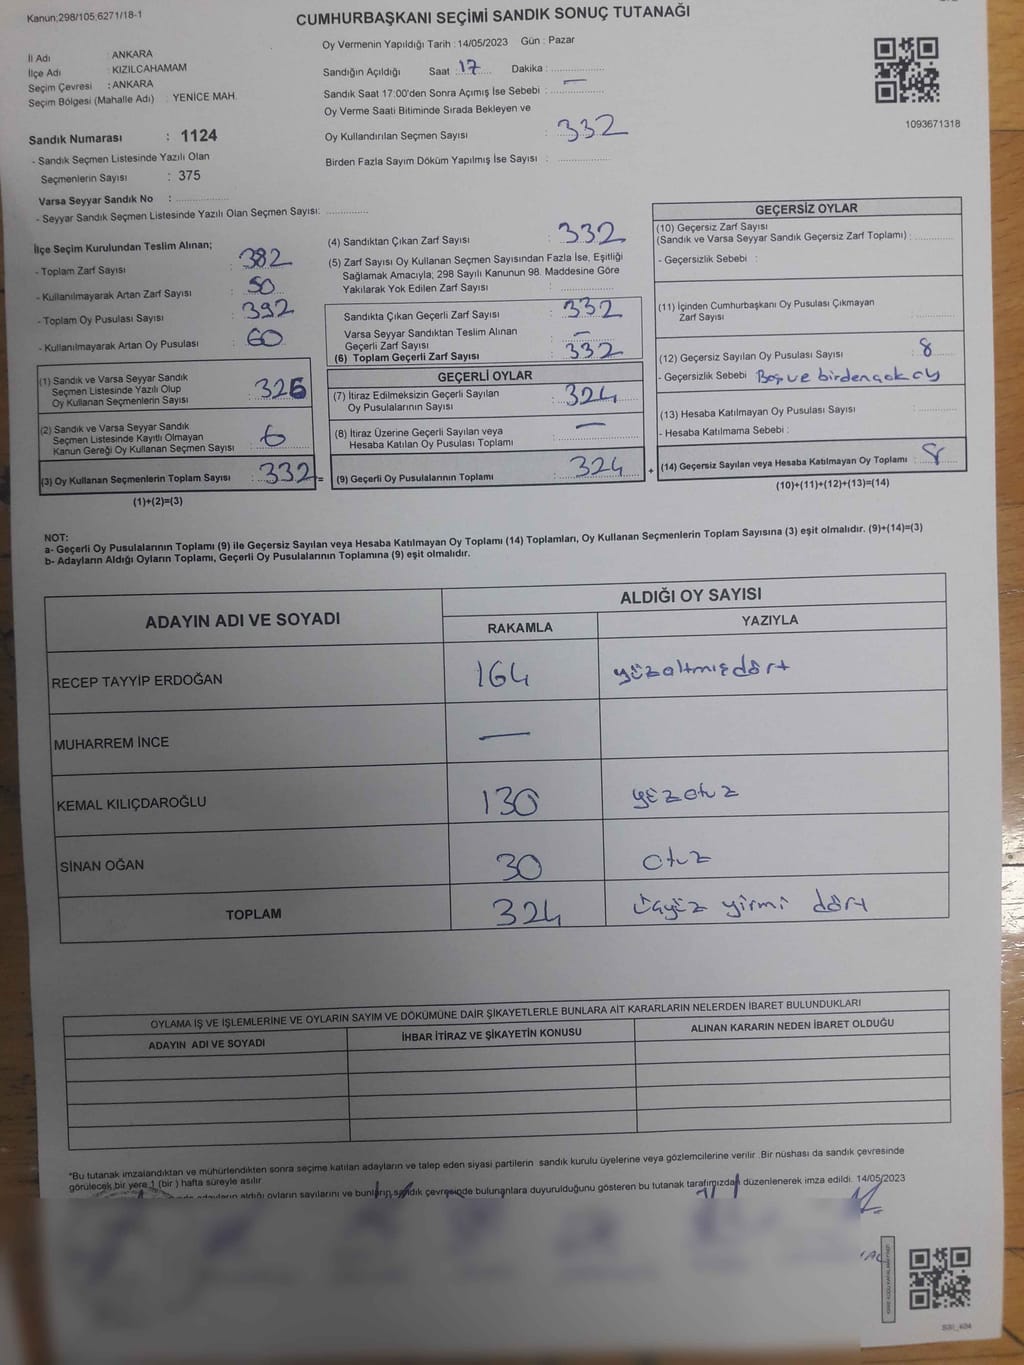 Kanun;298/105,6271/18-1
CUMHURBAŞKANI SEÇİMİ SANDIK SONUÇ TUTANAĞI
İl Adı : ANKARA
İlçe Adı : KIZILCAHAMAM
Seçim Çevresi : ANKARA
Seçim Bölgesi (Mahalle Adı) : YENİCE MAH.
Sandık Numarası : 1124
- Sandık Seçmen Listesinde Yazılı Olan
Seçmenlerin Sayısı : 375
Varsa Seyyar Sandık No : ..............
- Seyyar Sandık Seçmen Listesinde Yazılı Olan Seçmen Sayısı: ..............
Oy Vermenin Yapıldığı Tarih : 14/05/2023 Gün : Pazar
Sandığın Açıldığı Saat : 17 Dakika : ..............
Sandık Saat 17:00'den Sonra Açmış İse Sebebi : —
Oy Verme Saati Bitiminde Sırada Bekleyen ve
Oy Kullandırılan Seçmen Sayısı : 332
Birden Fazla Sayım Döküm Yapılmış İse Sayısı : ..............
1093671318
İlçe Seçim Kurulundan Teslim Alınan;
- Toplam Zarf Sayısı : 382
- Kullanılmayarak Artan Zarf Sayısı : 50
- Toplam Oy Pusulası Sayısı : 392
- Kullanılmayarak Artan Oy Pusulası : 60
(1) Sandık ve Varsa Seyyar Sandık
Seçmen Listesinde Yazılı Olup
Oy Kullanan Seçmenlerin Sayısı : 326
(2) Sandık ve Varsa Seyyar Sandık
Seçmen Listesinde Kayıtlı Olmayan
Kanun Gereği Oy Kullanan Seçmen Sayısı : 6
(3) Oy Kullanan Seçmenlerin Toplam Sayısı : 332 =
(1)+(2)=(3)
(4) Sandıktan Çıkan Zarf Sayısı : 332
(5) Zarf Sayısı Oy Kullanan Seçmen Sayısından Fazla İse, Eşitliği
Sağlamak Amacıyla; 298 Sayılı Kanunun 98. Maddesine Göre
Yakılarak Yok Edilen Zarf Sayısı : ..............
Sandıkta Çıkan Geçerli Zarf Sayısı : 332
Varsa Seyyar Sandıktan Teslim Alınan
Geçerli Zarf Sayısı : —
(6) Toplam Geçerli Zarf Sayısı : 332
GEÇERLİ OYLAR
(7) İtiraz Edilmeksizin Geçerli Sayılan
Oy Pusulalarının Sayısı : 324
(8) İtiraz Üzerine Geçerli Sayılan veya
Hesaba Katılan Oy Pusulası Toplamı : —
(9) Geçerli Oy Pusulalarının Toplamı : 324 +
GEÇERSİZ OYLAR
(10) Geçersiz Zarf Sayısı
(Sandık ve Varsa Seyyar Sandık Geçersiz Zarf Toplamı) : ..............
- Geçersizlik Sebebi :
(11) İçinden Cumhurbaşkanı Oy Pusulası Çıkmayan
Zarf Sayısı : ..............
(12) Geçersiz Sayılan Oy Pusulası Sayısı : 8
- Geçersizlik Sebebi Boş ve birden çok oy
(13) Hesaba Katılmayan Oy Pusulası Sayısı : ..............
- Hesaba Katılmama Sebebi :
(14) Geçersiz Sayılan veya Hesaba Katılmayan Oy Toplamı : 8
(10)+(11)+(12)+(13)=(14)
NOT:
a- Geçerli Oy Pusulalarının Toplamı (9) ile Geçersiz Sayılan veya Hesaba Katılmayan Oy Toplamı (14) Toplamları, Oy Kullanan Seçmenlerin Toplam Sayısına (3) eşit olmalıdır. (9)+(14)=(3)
b- Adayların Aldığı Oyların Toplamı, Geçerli Oy Pusulalarının Toplamına (9) eşit olmalıdır.
ADAYIN ADI VE SOYADI ALDIĞI OY SAYISI
RAKAMLA YAZIYLA
RECEP TAYYİP ERDOĞAN 164 yüzaltmışdört
MUHARREM İNCE —
KEMAL KILIÇDAROĞLU 130 yüzotuz
SİNAN OĞAN 30 otuz
TOPLAM 324 üçyüz yirmi dört
OYLAMA İŞ VE İŞLEMLERİNE VE OYLARIN SAYIM VE DÖKÜMÜNE DAİR ŞİKAYETLERLE BUNLARA AİT KARARLARIN NELERDEN İBARET BULUNDUKLARI
ADAYIN ADI VE SOYADI İHBAR İTİRAZ VE ŞİKAYETİN KONUSU ALINAN KARARIN NEDEN İBARET OLDUĞU
*Bu tutanak imzalandıktan ve mühürlendikten sonra seçime katılan adayların ve talep eden siyasi partilerin sandık kurulu üyelerine veya gözlemcilerine verilir. Bir nüshası da sandık çevresinde
görülecek bir yere 1 (bir ) hafta süreyle asılır.
adayların aldığı oyların sayılarını ve bunların sandık çevresinde bulunanlara duyurulduğunu gösteren bu tutanak tarafımızdan düzenlenerek imza edildi. 14/05/2023